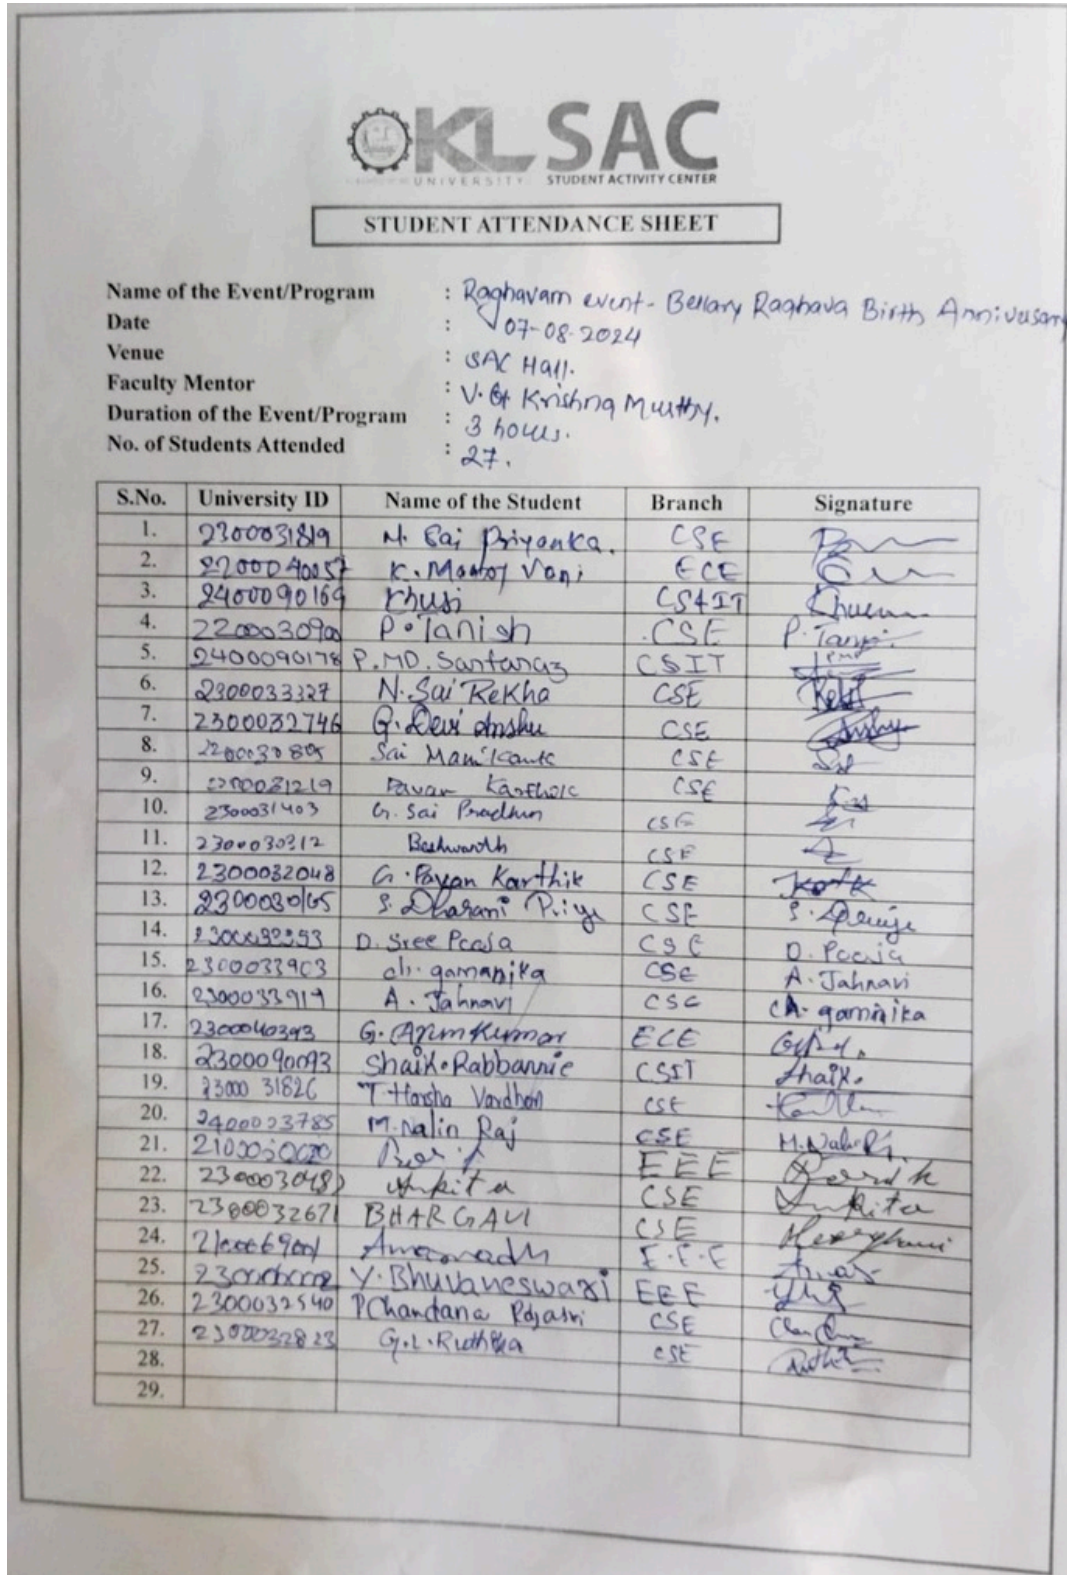 KL SAC
UNIVERSITY STUDENT ACTIVITY CENTER
STUDENT ATTENDANCE SHEET
Name of the Event/Program : Raghavam event - Bellary Raghava Birth Anniversary
Date : 07-08-2024
Venue : SAC Hall.
Faculty Mentor : V. G Krishna Murthy.
Duration of the Event/Program : 3 hours.
No. of Students Attended : 27.
S.No. University ID Name of the Student Branch Signature
1. 2300031819 N. Sai Priyanka. CSE
2. 2200040057 K. Manoj Vani ECE
3. 2400090169 Khusi CS&IT
4. 2200030900 P. Tanish CSE P. Tanish
5. 2400090178 P. MD. Sartaraz CSIT
6. 2300033327 N. Sai Rekha CSE
7. 2300032746 G. Devi Anshu CSE
8. 2200030805 Sai Manikanta CSE
9. 2200031219 Pavan Karthik CSE
10. 2300031403 G. Sai Pradhun CSE
11. 2300030312 Beshwanth CSE
12. 2300032048 G. Pavan Karthik CSE
13. 2300030165 S. Dharani Priya CSE
14. D. Sree Pooja CSE D. Pooja
15. 2300033903 ch. gamanika CSE A. Jahnavi
16. 2300033919 A. Jahnavi CSE ch. gamanika
17. 2300040393 G. Arun Kumar ECE
18. 2300090093 Shaik. Rabbannie CSIT Shaik.
19. 2300031826 T. Harsha Vardhan CSE
20. 2400033785 M. Nalin Raj CSE M. Nalin Raj
21. EEE
22. Ankita CSE Ankita
23. 2300032671 BHARGAVI CSE
24. Amarnadh E.E.E
25. Y. Bhuvaneswari EEE
26. 2300032540 P Chandana Rajasri CSE
27. 2300032823 G. L. Ruthika CSE
28.
29.